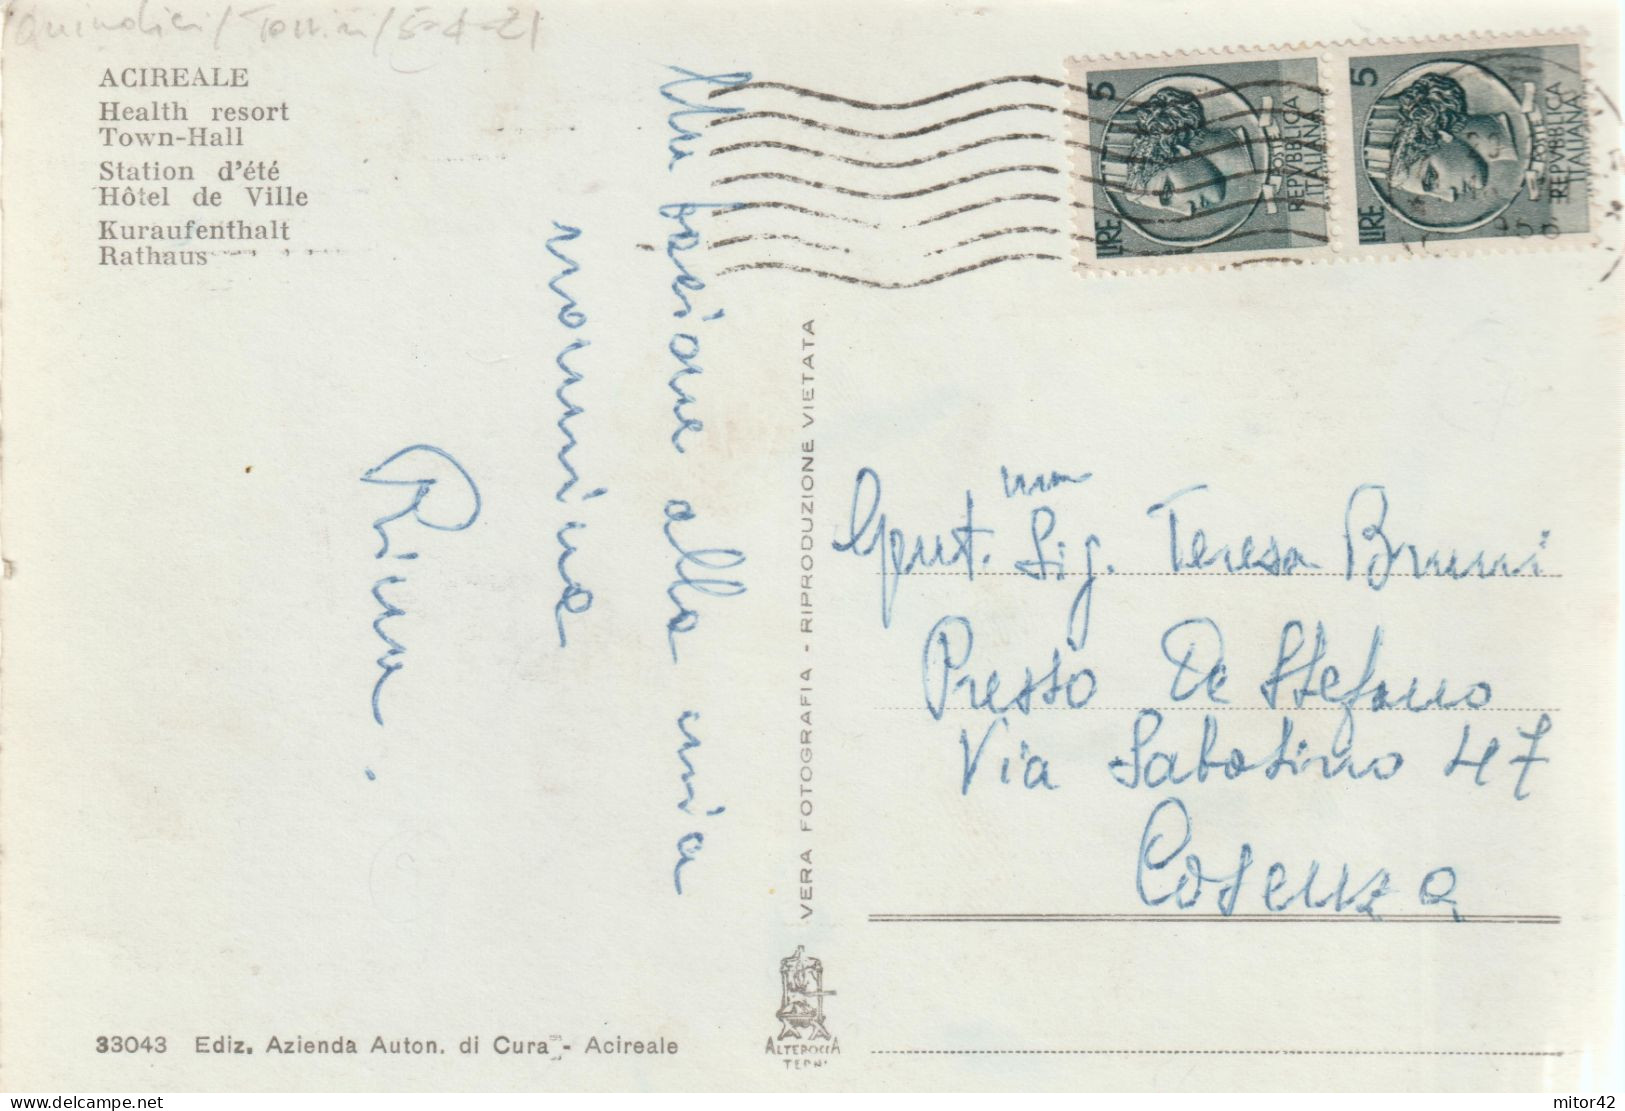 ACIREALE
Health resort
Town-Hall
Station d'été
Hôtel de Ville
Kuraufenthalt
Rathaus
Un bacione alla mia
mammina
Pina.
VERA FOTOGRAFIA - RIPRODUZIONE VIETATA
5
LIRE
POSTE
REPVBBLICA
ITALIANA
5
LIRE
POSTE
REPVBBLICA
ITALIANA
Gent.ma Sig. Teresa Bruni
Presso De Stefano
Via Sabotino 47
Cosenza
33043 Ediz. Azienda Auton. di Cura - Acireale
ALTEROCCA
TERNI
mitor42